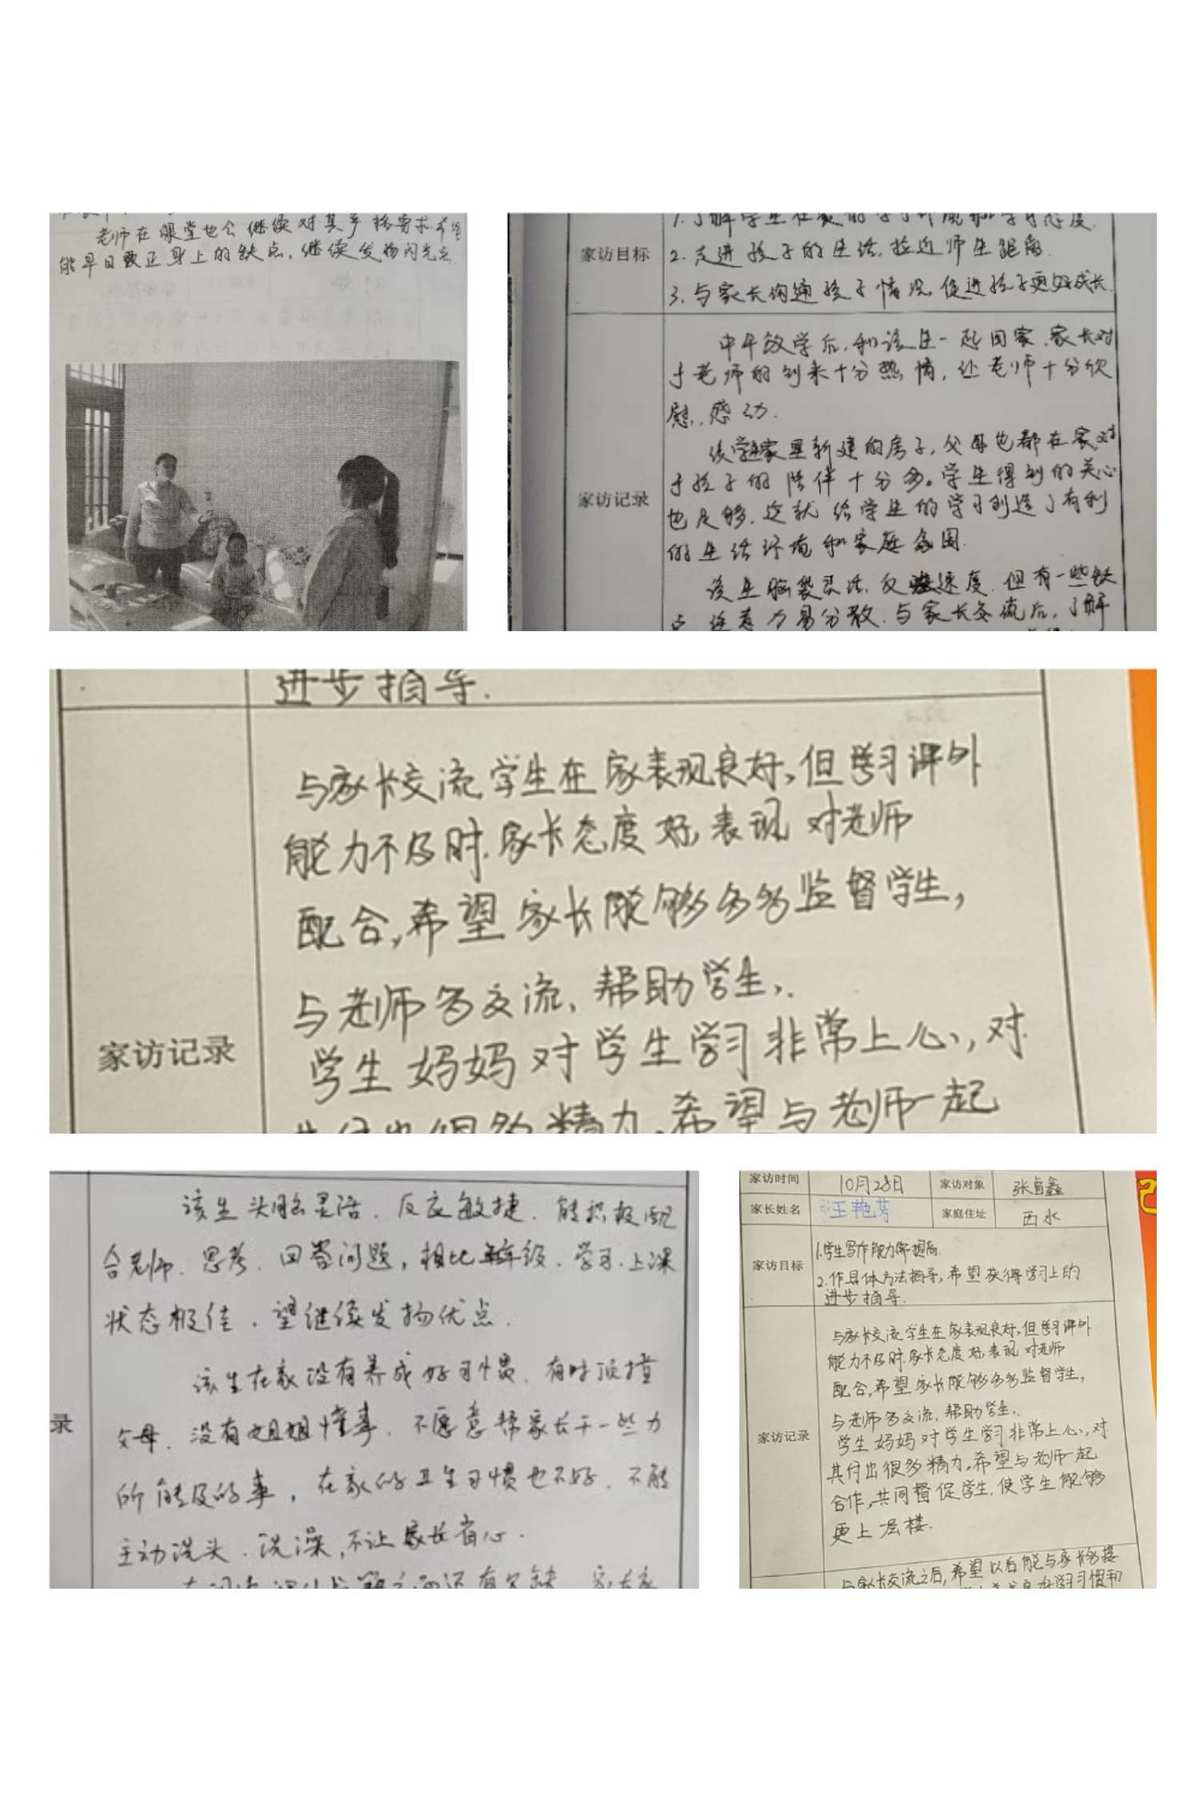 老师在课堂也会继续对其严格要求希望
能早日改正身上的缺点，继续发扬闪光点
家访目标
1.了解学生在家的学习环境和学习态度.
2.走进孩子的生活，拉近师生距离.
3.与家长沟通孩子情况，促进孩子更好成长.
家访记录
中午放学后，和该生一起回家，家长对
于老师的到来十分热情，让老师十分欣
慰，感动.
该学生家里新建的房子，父母也都在家，对
于孩子的陪伴十分多。学生得到的关心
也足够，这就给学生的学习创造了有利
的生活环境和家庭氛围.
该生脑袋灵活，反应速度，但有一些缺
点，注意力易分散，与家长交流后，了解
进步指导.
家访记录
与家长交流，学生在家表现良好，但学习课外
能力不及时，家长态度好，表现对老师
配合，希望家长能够多多监督学生，
与老师多交流，帮助学生，.
学生妈妈对学生学习非常上心，对
其付出很多精力，希望与老师一起
录
该生头脑灵活，反应敏捷，能积极配
合老师，思考，回答问题，相比年级，学习，上课
状态极佳，望继续发扬优点.
该生在家没有养成好习惯，有时顶撞
父母，没有姐姐懂事，不愿意帮家长干一些力
所能及的事，在家的卫生习惯也不好，不能
主动洗头，洗澡，不让家长省心.
家访时间 10月28日 家访对象 张自鑫
家长姓名 汪艳芳 家庭住址 西水
家访目标
1.学生写作能力需提高.
2.作具体方法指导，希望获得学习上的
进步指导.
家访记录
与家长交流，学生在家表现良好，但学习课外
能力不及时，家长态度好，表现对老师
配合，希望家长能够多多监督学生，
与老师多交流，帮助学生，.
学生妈妈对学生学习非常上心，对
其付出很多精力，希望与老师一起
合作，共同督促学生，使学生能够
更上层楼.
与家长交流之后，希望以后能与家长多接